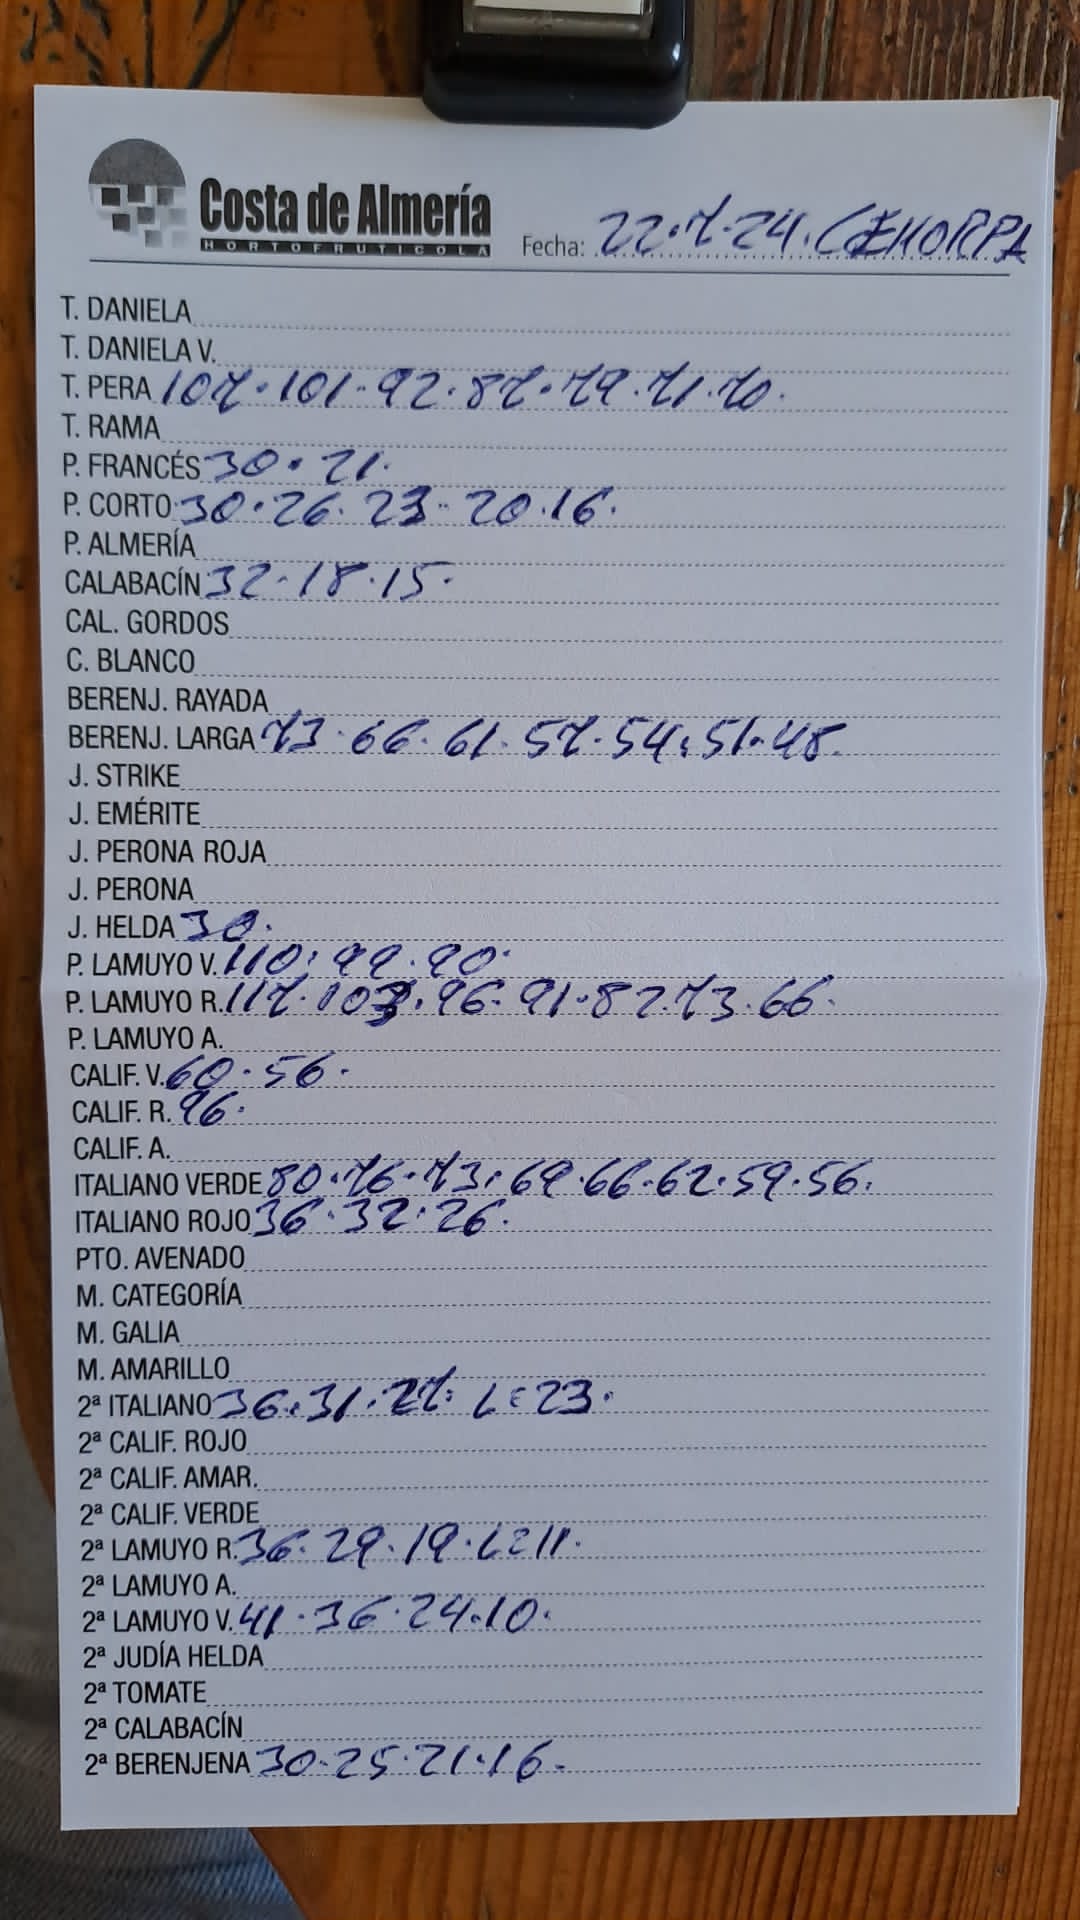 Costa de Almería
HORTOFRUTICOLA
Fecha: 22.7.24. CEHORPA
T. DANIELA
T. DANIELA V.
T. PERA 107.101.92.87.79.71.70.
T. RAMA
P. FRANCÉS 30.21.
P. CORTO 30.26.23.20.16.
P. ALMERÍA
CALABACÍN 32.18.15.
CAL. GORDOS
C. BLANCO
BERENJ. RAYADA
BERENJ. LARGA 73.66.61.57.54.51.48.
J. STRIKE
J. EMÉRITE
J. PERONA ROJA
J. PERONA
J. HELDA 30.
P. LAMUYO V. 110.99.90.
P. LAMUYO R. 117.103.96.91.82.73.66.
P. LAMUYO A.
CALIF. V. 60.56.
CALIF. R. 96.
CALIF. A.
ITALIANO VERDE 80.76.73.69.66.62.59.56.
ITALIANO ROJO 36.32.26.
PTO. AVENADO
M. CATEGORÍA
M. GALIA
M. AMARILLO
2ª ITALIANO 36.31.27. L=23.
2ª CALIF. ROJO
2ª CALIF. AMAR.
2ª CALIF. VERDE
2ª LAMUYO R. 36.29.19.L=11.
2ª LAMUYO A.
2ª LAMUYO V. 41.36.24.10.
2ª JUDÍA HELDA
2ª TOMATE
2ª CALABACÍN
2ª BERENJENA 30.25.21.16.